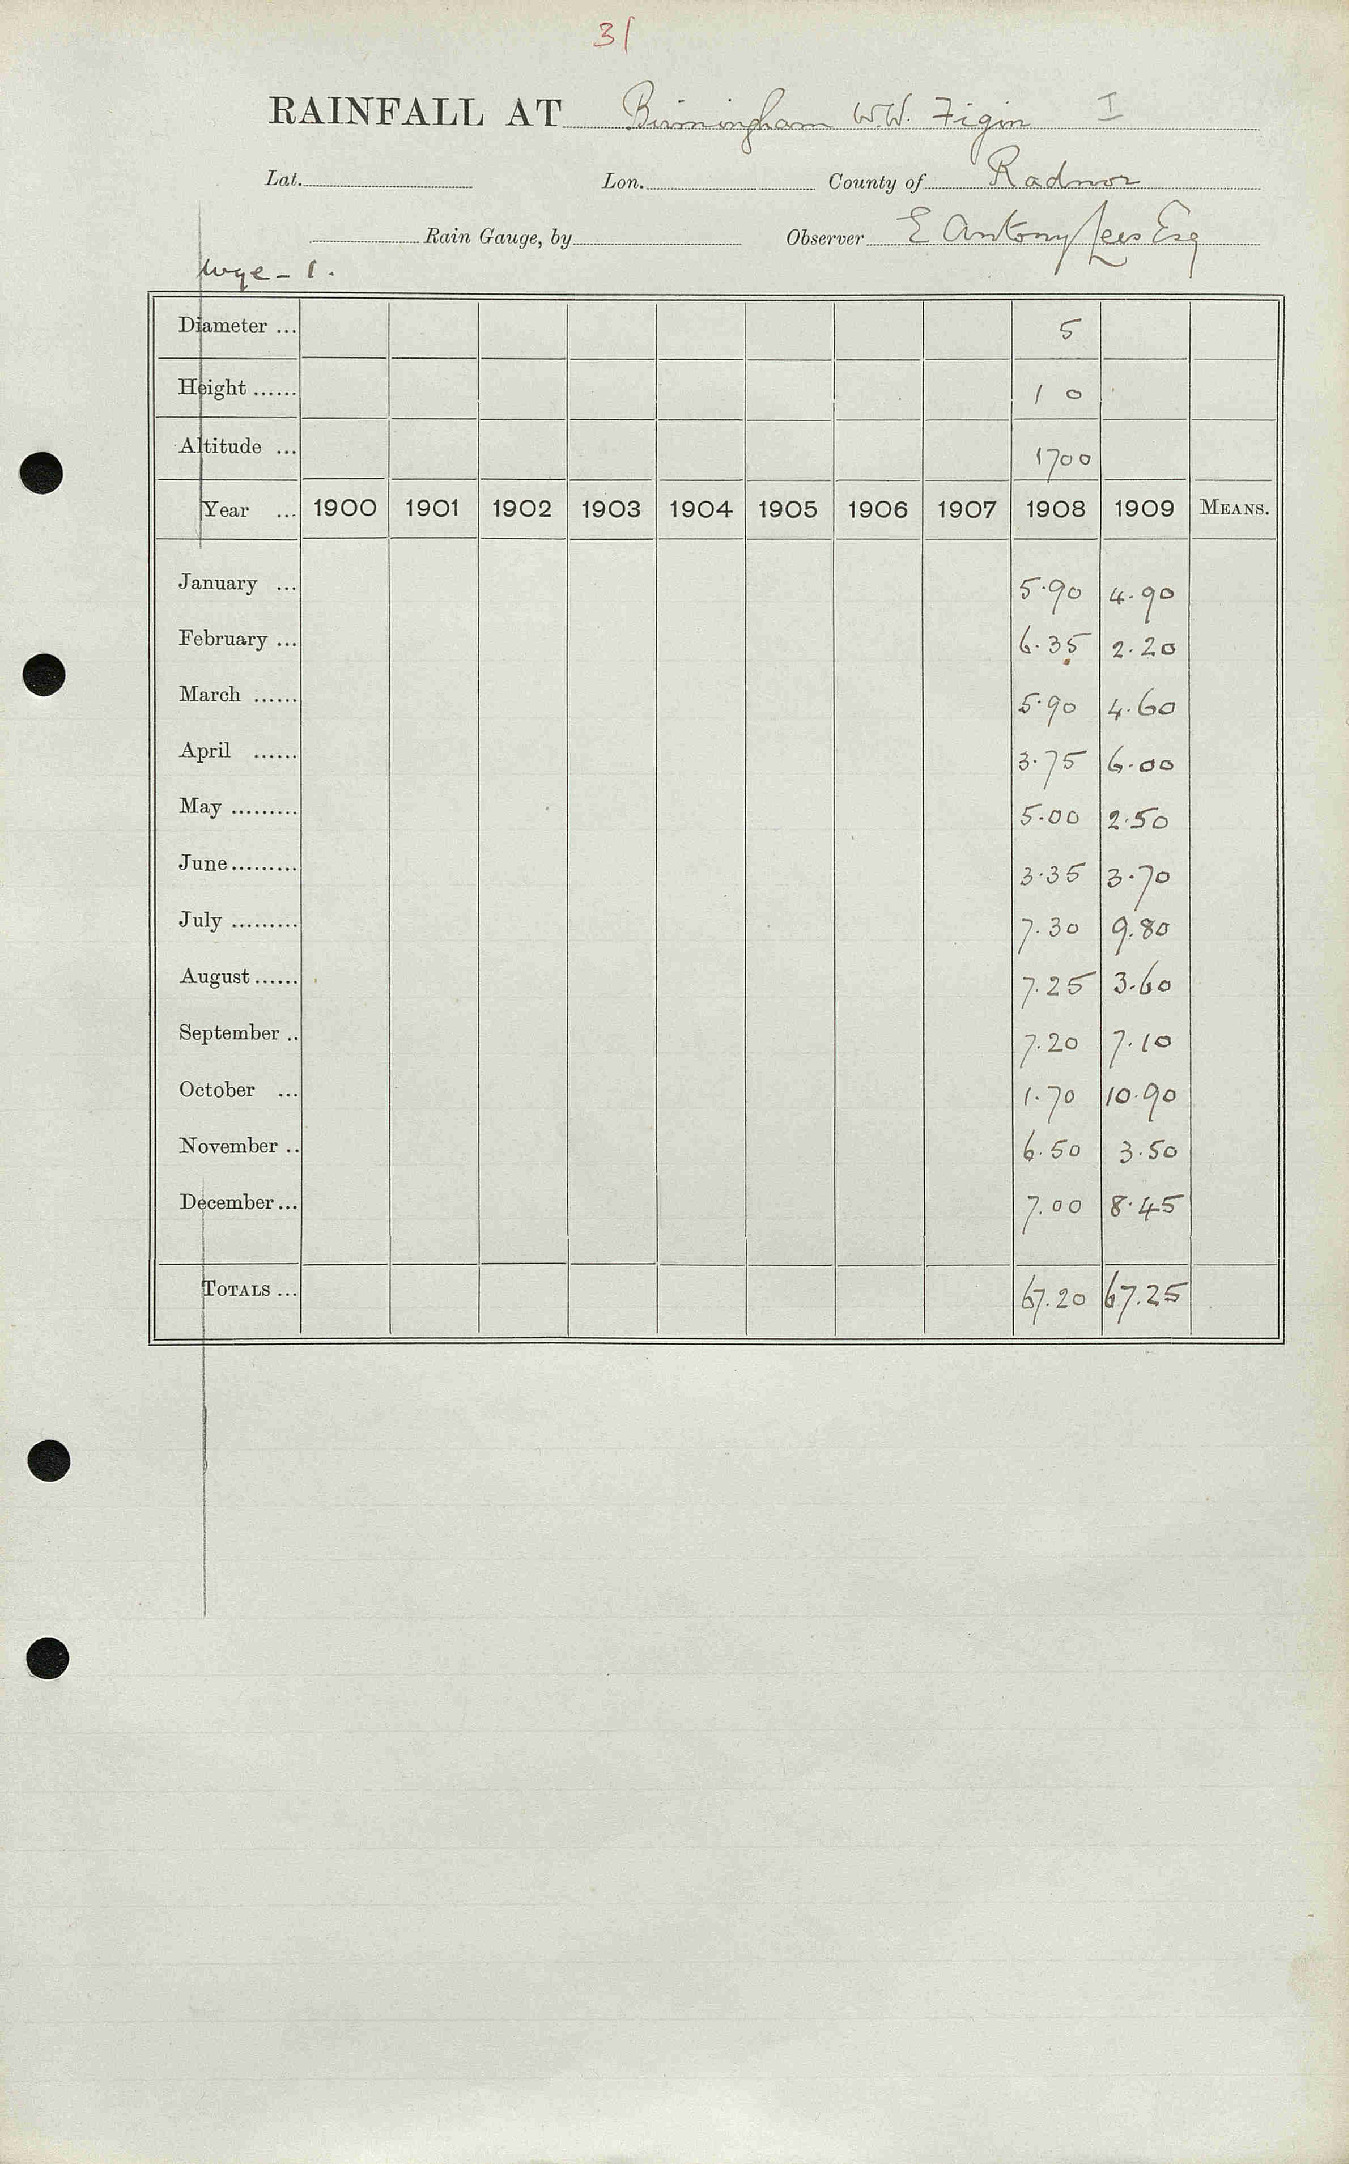 31
RAINFALL AT Birmingham W.W. Figin I
Lat. Lon. County of Radnor
Rain Gauge, by Observer E Antony Lees Esq
Wye - 1.
Diameter ... 5
Height ...... 1 0
Altitude ... 1700
Year ... 1900 1901 1902 1903 1904 1905 1906 1907 1908 1909 MEANS.
January ... 5.90 4.90
February ... 6.35 2.20
March ...... 5.90 4.60
April ...... 3.75 6.00
May ......... 5.00 2.50
June......... 3.35 3.70
July ......... 7.30 9.80
August ...... 7.25 3.60
September .. 7.20 7.10
October ... 1.70 10.90
November .. 6.50 3.50
December ... 7.00 8.45
TOTALS ... 67.20 67.25